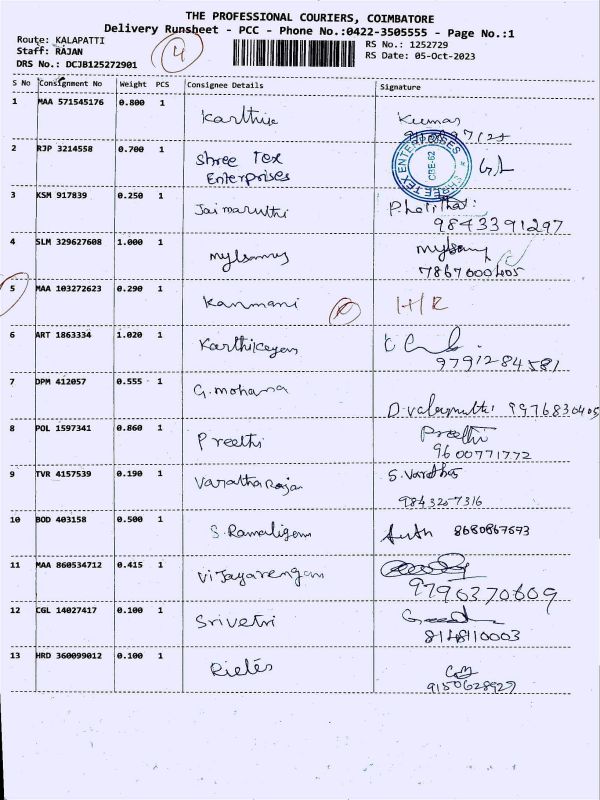 THE PROFESSIONAL COURIERS, COIMBATORE
Delivery Runsheet - PCC - Phone No.:0422-3505555 - Page No.:1
Route: KALAPATTI
Staff: RAJAN
DRS No.: DCJB125272901
4
RS No.: 1252729
RS Date: 05-Oct-2023
S No Consignment No Weight PCS Consignee Details Signature
1 MAA 571545176 0.800 1 Karthik Kumar
2 RJP 3214558 0.700 1 Shree Tex
Enterprises
SHREE TEX ENTERPRISES
CBE-62
3 KSM 917839 0.250 1 Jai maruthi
9843391297
4 SLM 329627608 1.000 1
7867000405
5 MAA 103272623 0.290 1 Kanmani
6 ART 1863334 1.020 1 Karthikeyen
9791284581
7 DPM 412057 0.555 1 G. mohana
9976830405
8 POL 1597341 0.860 1 Preethi Preethi
9600771772
9 TVR 4157539 0.190 1 Varatharaja S. Vardha
9843257316
10 BOD 403158 0.500 1 S. Ramaligem 8680867673
11 MAA 860534712 0.415 1 Vijayarengan
9790370609
12 CGL 14027417 0.100 1 Srivetri
8148110003
13 HRD 360099012 0.100 1
9150628927